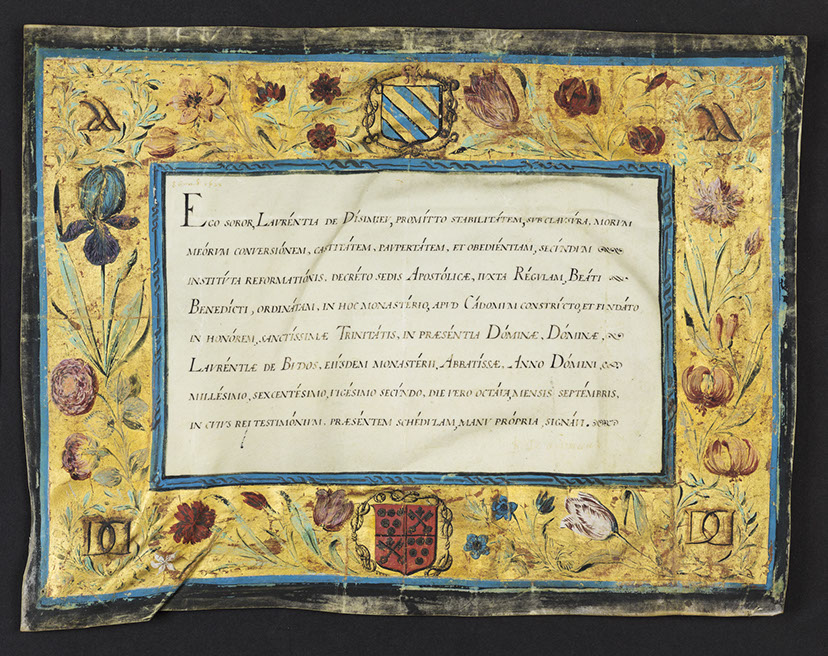 EGO SOROR, LAVRÉNTIA DE DÍSIMIEV, PROMÍTTO STABILITÁTEM, SVB CLAVSVRA, MORVM
MEÓRVM CONVERSIÓNEM, CASTITÁTEM, PAVPERTÁTEM, ET OBEDIÉNTIAM, SECÚNDVM
INSTITÚTA REFORMATIÓNIS, DECRÉTO SEDIS APOSTÓLICÆ, IVXTA RÉGVLAM, BEÁTI
BENEDÍCTI, ORDINÁTAM, IN HOC MONASTÉRIO, APVD CÁDOMVM CONSTRÚCTO, ET FVNDÁTO
IN HONÓREM, SANCTÍSSIMÆ TRINITÁTIS, IN PRÆSÉNTIA DÓMINÆ, DÓMINÆ,
LAVRÉNTIÆ DE BÚDOS, EIÚSDEM MONASTÉRII, ABBATÍSSÆ. ANNO DÓMINI,
MILLÉSIMO, SEXCENTÉSIMO, VIGÉSIMO SECÚNDO, DIE VERO OCTÁVA, MENSIS SEPTÉMBRIS,
IN CVIVS REI TESTIMÓNIVM, PRÆSÉNTEM SCHÉDVLAM, MANV PRÓPRIA, SIGNÁVI.